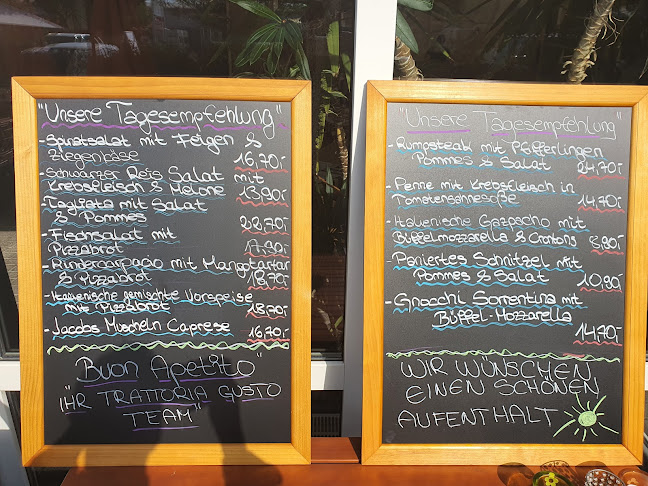 "Unsere Tagesempfehlung"
- Spinatsalat mit Feigen &
Ziegenkäse 16,70,-
- Schwarzer Reis Salat mit
Krebsfleisch & Melone 13,90,-
- Tagliata mit Salat
& Pommes 22,70,-
- Fischsalat mit
Pizzabrot 17,90,-
- Rindercarpacio mit Mangotartar
& Pizzabrot 18,70,-
- Italienische gemischte Vorspeise
mit Pizzabrot 15,70,-
- Jacobs Muscheln Caprese 16,70,-
Buon Apetito"
"IHR TRATTORIA GUSTO
TEAM"
"Unsere Tagesempfehlung"
- Rumpsteak mit Pfifferlingen
Pommes & Salat 24,70,-
- Penne mit Krebsfleisch in
Tomatensahnesoße 14,70,-
- Italienische Gazpacho mit
Büffelmozzarella & Crotons 8,90,-
- Paniertes Schnitzel mit
Pommes & Salat 10,90,-
- Gnocchi Sorrentina mit
Büffel-Mozzarella
14,70,-
WIR WÜNSCHEN
EINEN SCHÖNEN
AUFENTHALT